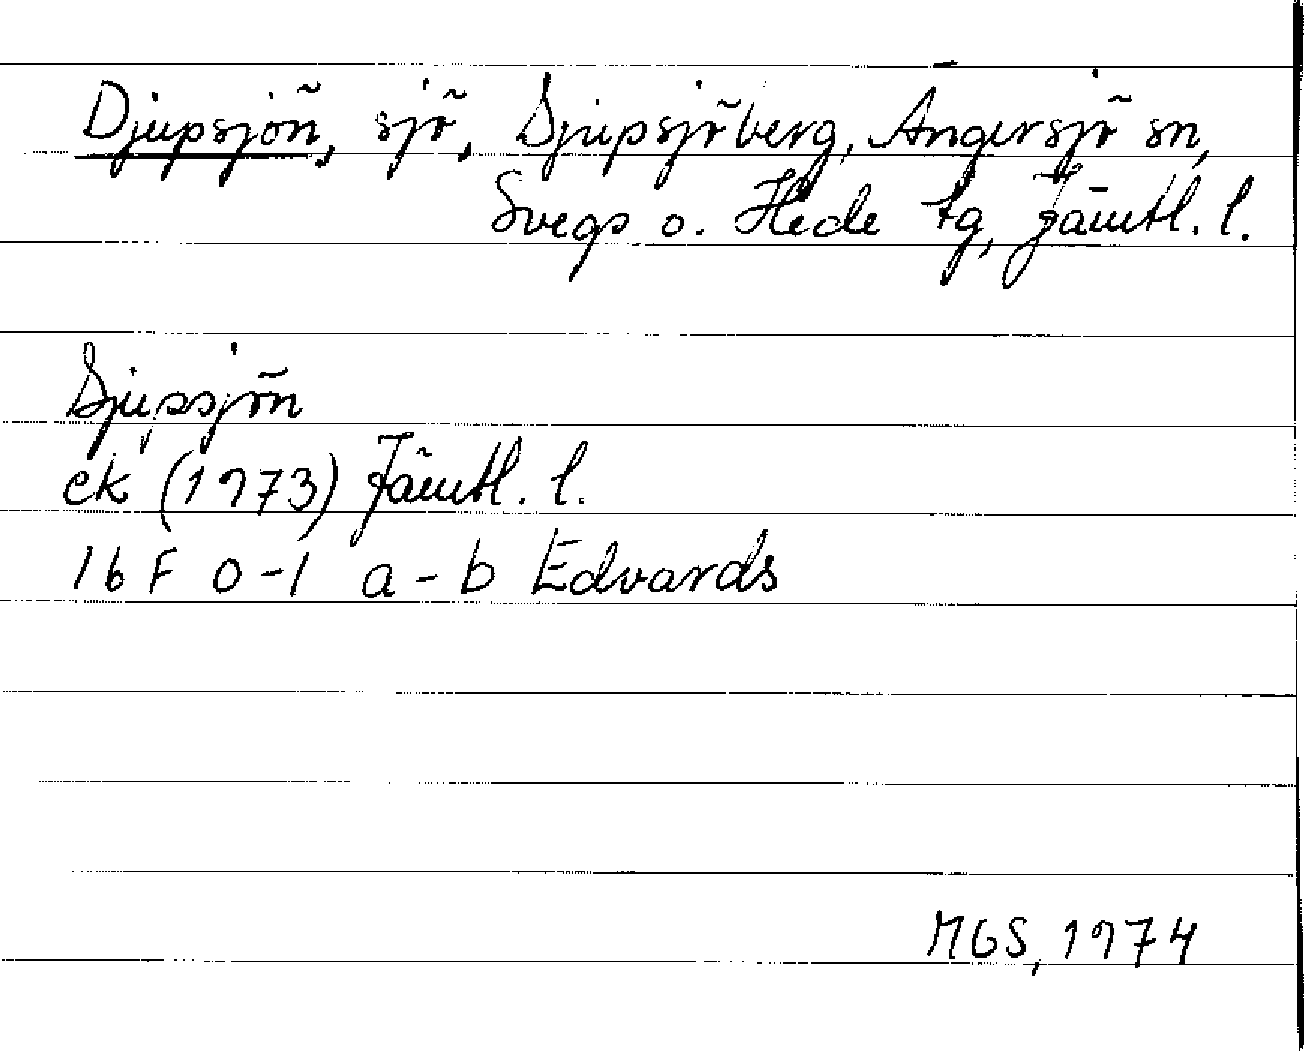 Djupsjön, sjö, Djupsjöberg, Ängersjö sn,
Svegs o. Hede tg, Jämtl. l.
Djupsjön
ek (1973) Jämtl. l.
16 F 0-1 a-b Edvards
MGS, 1974